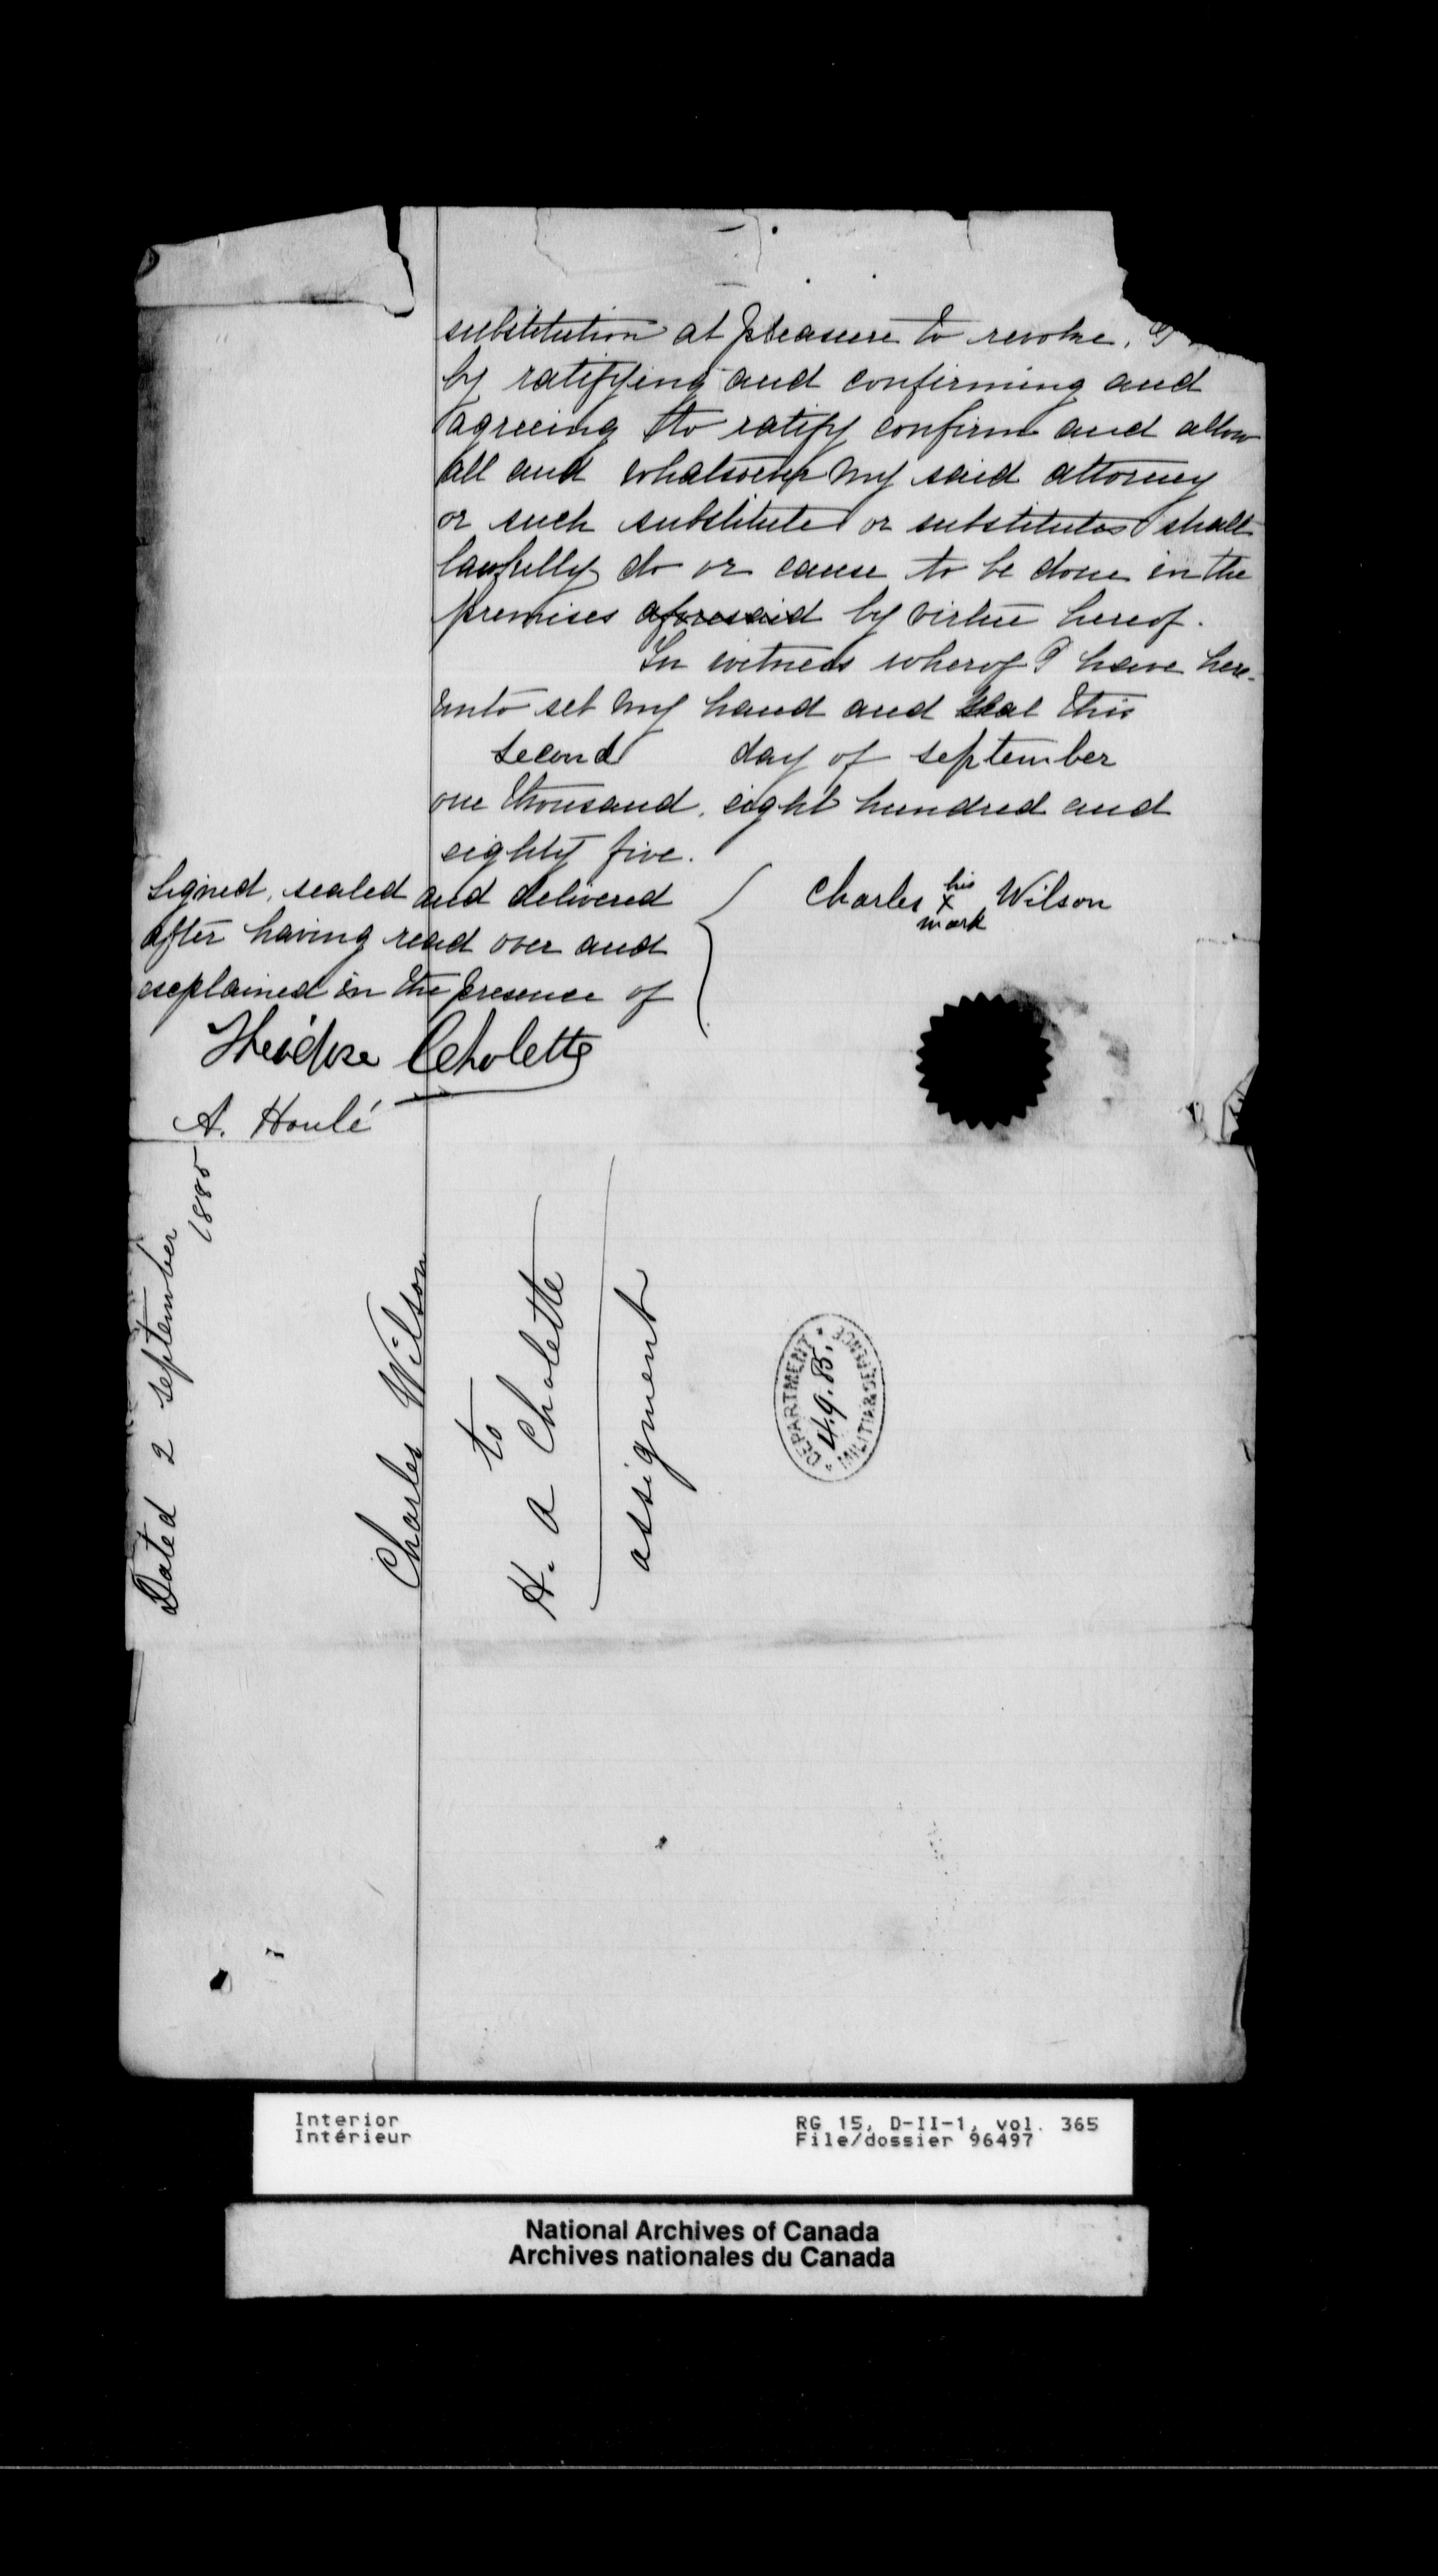 substitution at pleasure to revoke,
by ratifying and confirming and
agreeing to ratify confirm and allow
all and whatsoever my said attorney
or such substitute or substitutes shall
lawfully do or cause to be done in the
premises aforesaid by virtue hereof.
In witness wherof I have here-
unto set my hand and seal this
second day of september
one thousand, eight hundred and
eighty five.
Signed, sealed and delivered
after having read over and
explained in the presence of
Charles his x mark Wilson
Théodore Cholette
A. Houlé
Dated 2 september
1885
Charles Wilson
to
H. A Cholette
assignment
DEPARTMENT
4.9.85.
MILITIA & DEFENCE
Interior
Intérieur
RG 15, D-II-1, vol. 365
File/dossier 96497
National Archives of Canada
Archives nationales du Canada